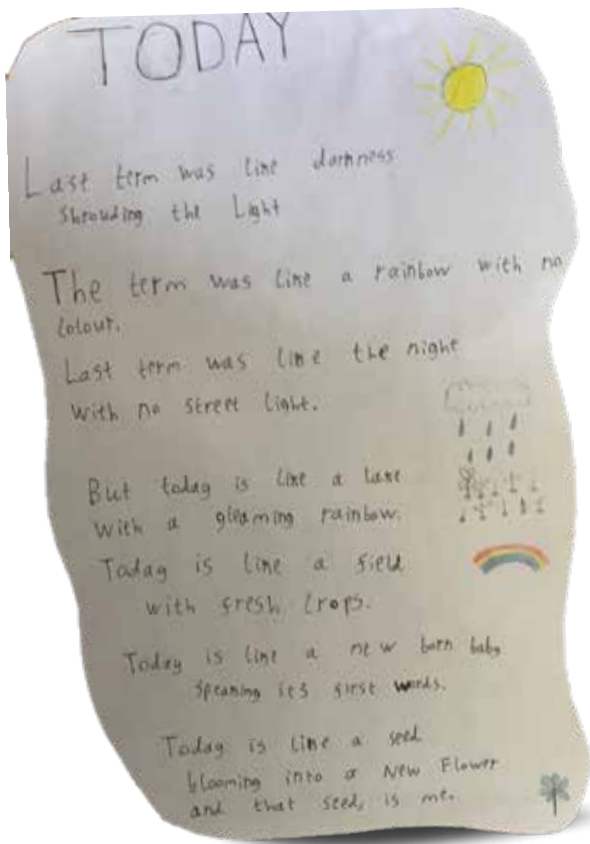 TODAY
Last term was like darkness
shrouding the Light
The term was like a rainbow with no
colour.
Last term was like the night
with no street light.
But today is like a lake
with a gleaming rainbow.
Today is like a field
with fresh crops.
Today is like a new born baby
speaking its first words.
Today is like a seed
blooming into a New Flower
and that seed, is me.